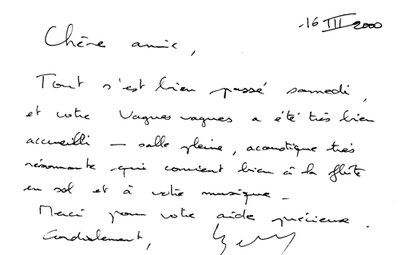 16 III 2000
Chère amie,
Tout s'est bien passé samedi,
et votre Vagues vagues a été très bien
accueilli — salle pleine, acoustique très
résonnante qui convient bien à la flûte
en sol et à votre musique.
Merci pour votre aide précieuse.
Cordialement,